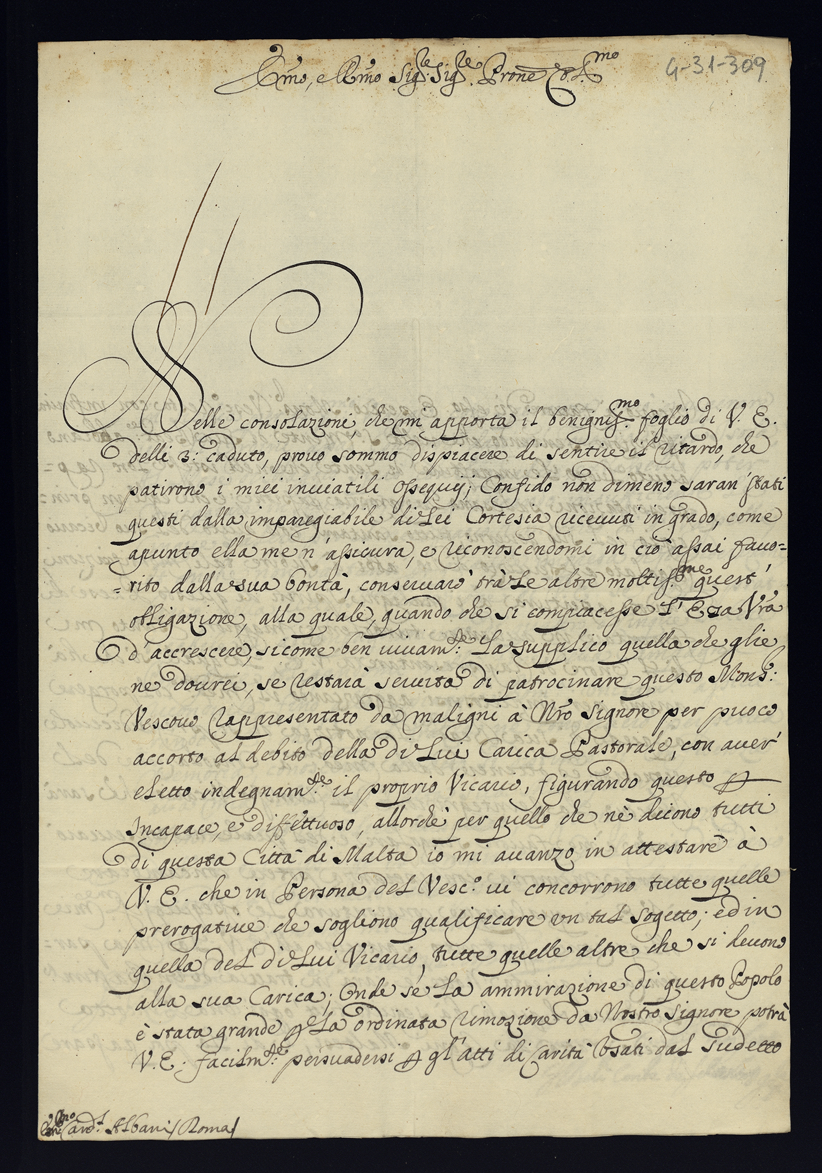 Emo, e Rmo Sigre. Sigre. Prone Colmo
G-31-309
Nelle consolazione, che mi apporta il benignissmo. foglio di V. E.
delli 3: caduto, provo sommo dispiacere di sentire il ritardo, che
patirono i miei inviatili ossequij; Confido non dimeno saran' stati
questi dalla impareggiabile di Lei Cortesia ricevuti in grado, come
apunto ella me n'assicura, e riconoscendomi in ciò assai favo=
=rito dalla sua bontà, conservarò trà le altre moltissme quest'
obligazione, alla quale, quando che si compiacesse l'Eza Vra
d'accrescere, sicome ben vivamte: La supplico quella che glie
ne dovrei, se restarà servita di patrocinare questo Monsr:
Vescovo rappresentato da maligni à Nro Signore per puoco
accorto al debito della di Lui Carica Pastorale, con aver'
eletto indegnamte: il proprio Vicario, figurando questo p
Incapace, e difettuoso, allorchè per quello che nè dicono tutti
di questa Città di Malta io mi avanzo in attestare à
V. E. che in Persona del Vesco: vi concorrono tutte quelle
prerogative che sogliono qualificare vn tal sogetto; ed in
quella del di Lui Vicario, tutte quelle altre che si devono
alla sua Carica; Onde se la ammirazione di questo Popolo
è stata grande p la ordinata rimozione da Nostro Signore potrà
V. E. facilmte: persuadersi p gl'atti di carità usati dal sudetto
Card.l Albani / Roma /